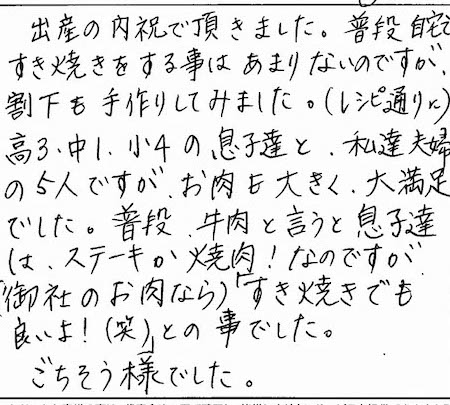 出産の内祝で頂きました。普段自宅で
すき焼きをする事はあまりないのですが、
割下も手作りしてみました。(レシピ通りに)
高3、中1、小4の息子達と、私達夫婦
の5人ですが、お肉も大きく、大満足
でした。普段、牛肉と言うと息子達
は、ステーキか焼肉!なのですが、
(御社のお肉なら)「すき焼きでも
良いよ!(笑)」との事でした。
ごちそう様でした。